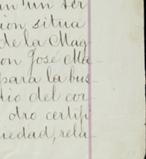 un ter
ion situa
de la Mag
on José Ma
para la bus
dio del cor
dro certifi
iedad, rela